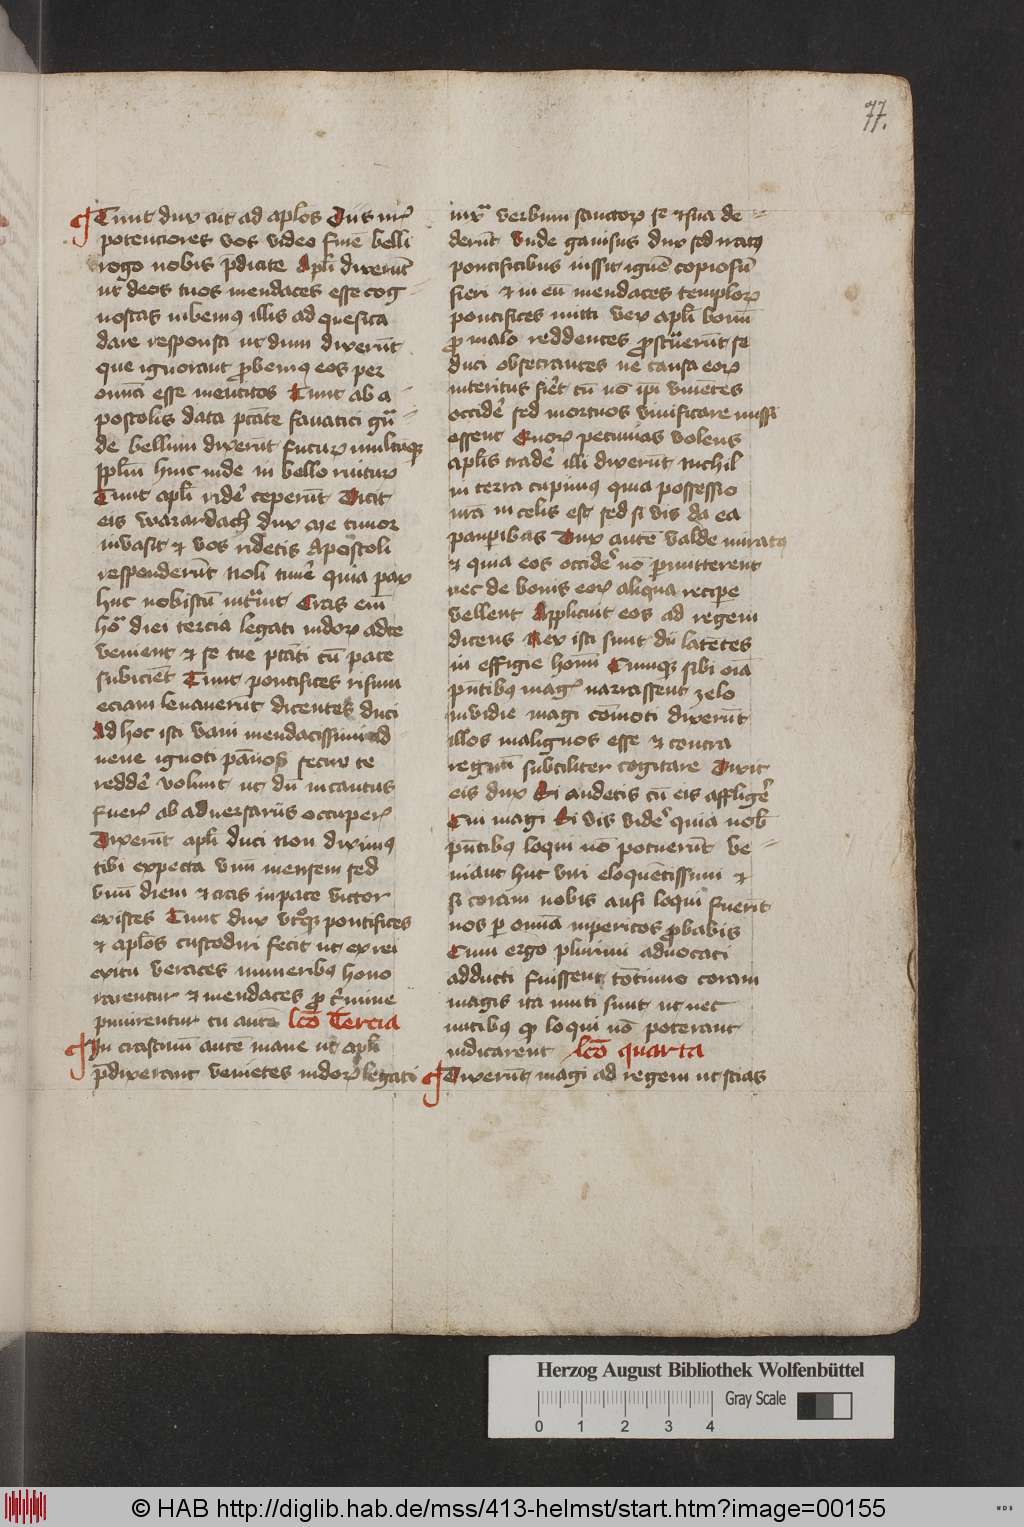 77.
Tunc dux ait ad aplos Diis nr̄is
potenciores vos video finē belli
rogo nobis p̄dicite Apl̄i dixerūt
ut deos tuos mendaces esse cog-
noscas iubemꝰ illis ad quesita
dare responsa ut dum dixerūt
que ignorant ꝓbemꝰ eos per
omīa esse mentitos Tunc ab a-
postolis data ptāte fanatici gͣ-
de bellum dixerūt futurꝝ multūqꝫ
ppl̄m hinc inde in bello ruiturꝝ
Tunc apl̄i ridē ceperūt Dicit
eis warardach dux me timor
invasit et vos ridetis Apostoli
responderūt Noli timē quia pax
huc nobiscū intͣuit Cras eīm
hͦ diei tercia legati indorꝝ ad te
venient et se tue ptāti cū pace
subiciēt Tunc pontifices risum
eciam levaverūt dicentes duci
Ad hoc isti vani mendacissimi ad
vene ignoti pānosi securꝝ te
reddē volunt ut dū incautus
fueris ab adversariis occuperis
Dixerūt apl̄i duci Non diximꝰ
tibi expecta unū mensem sed
unū diem et eris in pace victor
existēs Tunc dux utͦsqꝫ pontifices
et aplos custodiri fecit ut ex rei
exitu veraces muneribꝰ hono
rarentur et mendaces ꝓ crimine
punirentur tu autē lcō Tercia
In crastinū autē mane ut apl̄i
p̄dixerant venietes indorꝝ legati
iuxͣ verbum sanctorꝝ se et sua de-
derūt Unde gavisus dux sed iratꝰ
pontificibus iussit ignē copiosū
fieri et in eū mendaces templorꝝ
pontifices mitti verū apl̄i bonū
ꝓ malo reddentes ꝓstͣverūt se
duci obsecrantes ne causa eorꝝ
interitus fierēt cū nō ip̄i viventes
occidē sed mortuos vivificare missi
essent Quorꝝ pecunias volens
aplis tradē illi dixerūt Nichil
in terra cupimꝰ quia possessio
nrā in celis est sed si vis da ea
pauperibus Dux autē valde miratꝰ
et quia eos occidē nō permitterent
nec de bonis eorꝝ aliqua recipe
vellent Applicuit eos ad regem
dicens Rex isti sunt dii latētes
in effigie homīm Cumqꝫ sibi oīa
pn̄tibꝰ magis narrassent zelo
invidie magi cōmoti dixerūt
illos malignos esse et contra
regnū subtiliter cogitare Dixit
eis dux Si audetis cū eis afflige
Cui magi Si vis vidē quia nob̄
pn̄tibꝰ loqui nō potuerūt ve-
niant huc viri eloquētissimi et
si coram nobis ausi loqui fuerīt
nos per omīa imperitos ꝓbabis
Cum ergo plurimi advocati
adducti fuissent cōtinuo coram
magis ita muti sunt ut nec
nutibꝰ qꝫ loqui nō poterant
indicarent lcō quarta
Dixerūt magi ad regem ut scias
Herzog August Bibliothek Wolfenbüttel
Gray Scale
0 1 2 3 4
© HAB http://diglib.hab.de/mss/413-helmst/start.htm?image=00155